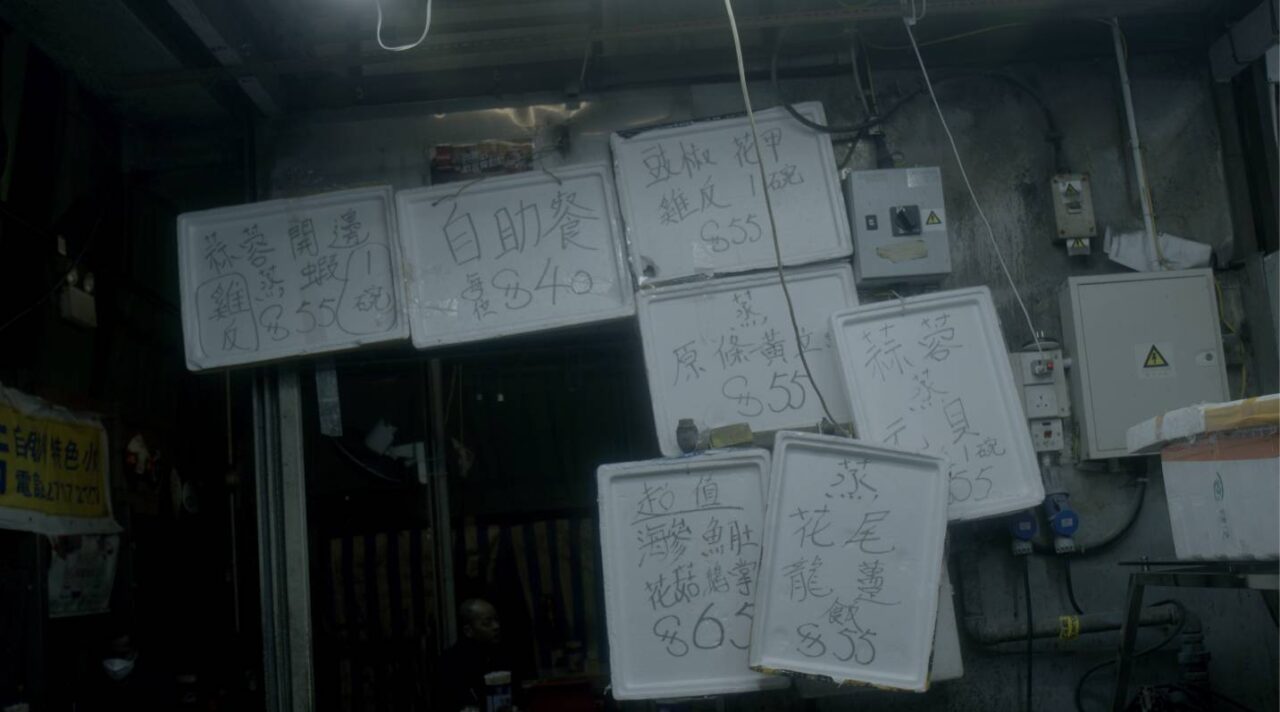 蒜蓉開邊
蒸蝦
雞反
1碗
$55
自助餐
每位 $40
豉椒 花甲
雞反 1碗
$55
蒸
原條黃立
$55
蒜蓉
蒸
元貝
1碗
55
超值
海參魚肚
花菇鵝掌
$65
蒸
花尾
龍躉
飯
$55
自助 特色小
電話2717 2